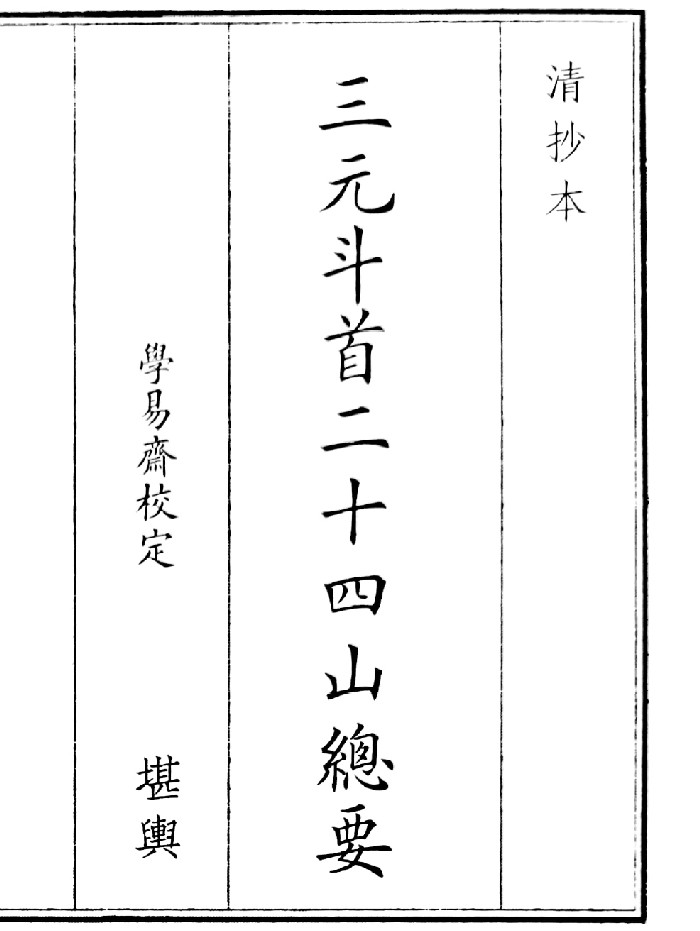 清抄本
三元斗首二十四山總要
學易齋校定
堪輿